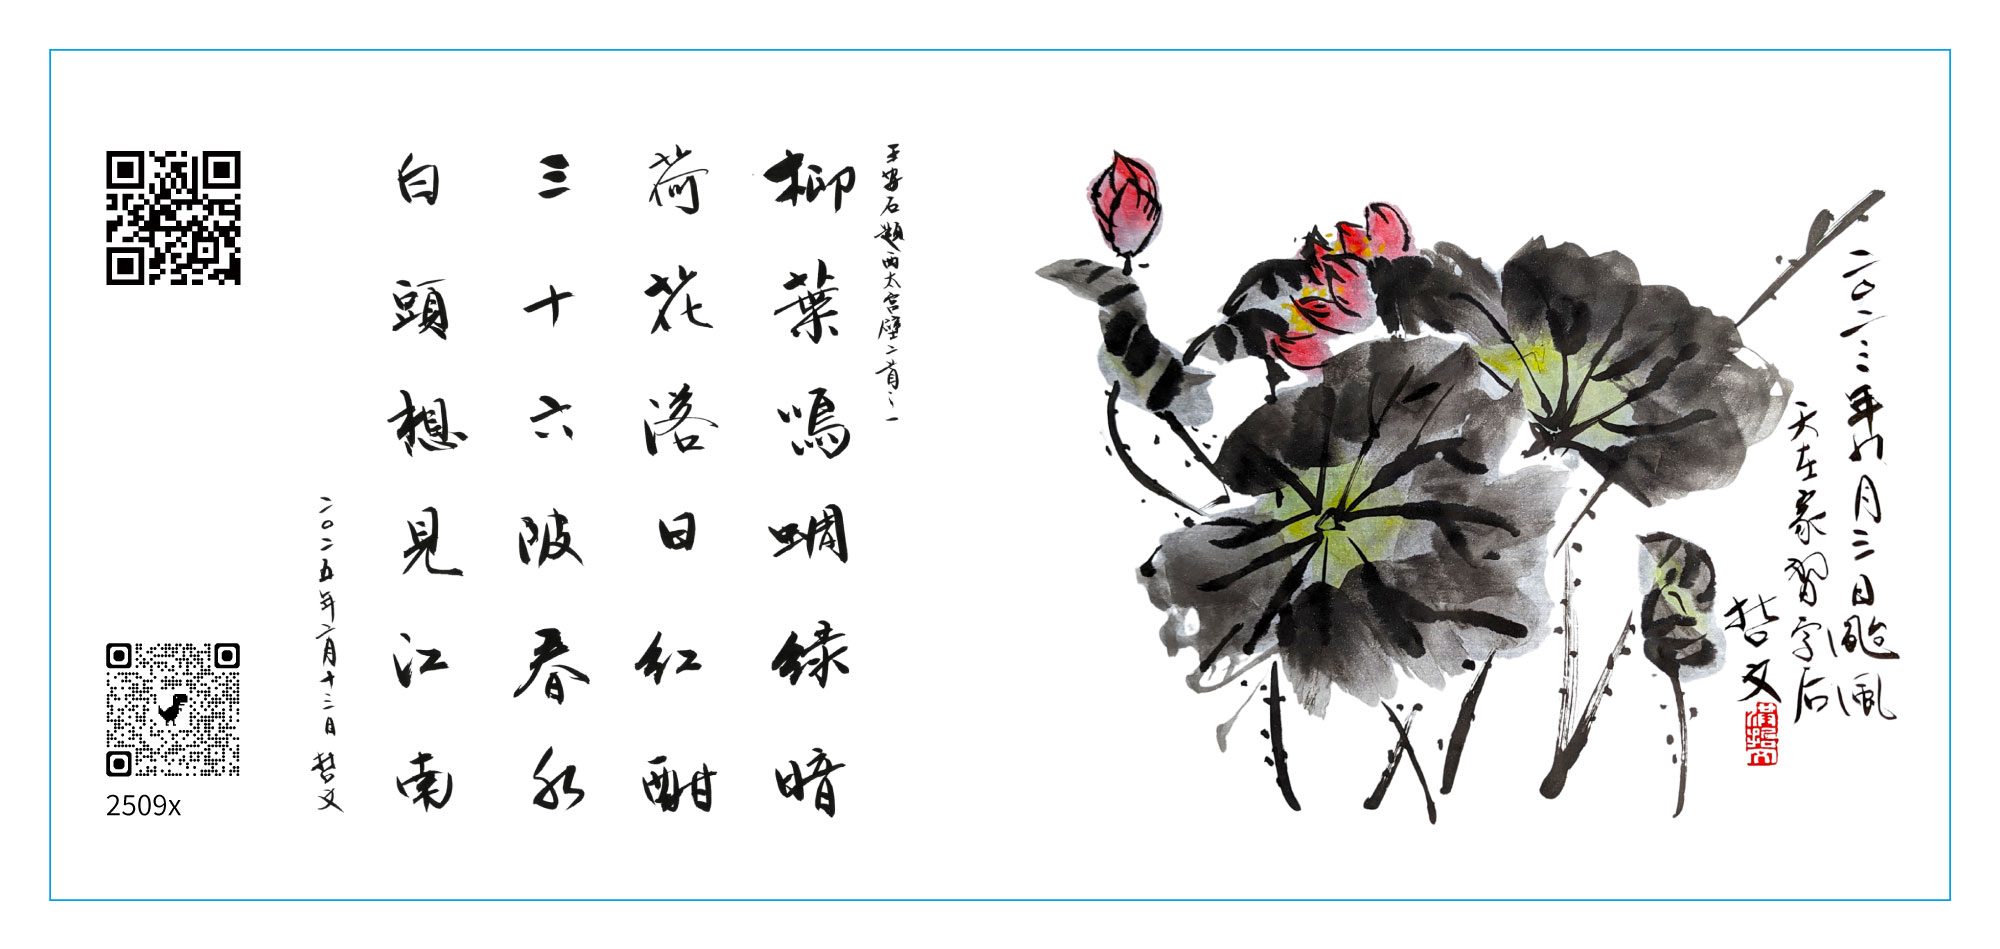 二〇二三年九月三日颱風
天在家習字后
哲文
王安石题西太宫壁二首之一
柳葉鳴蜩綠暗
荷花落日紅酣
三十六陂春水
白頭想見江南
二〇二五年六月十三日 哲文
2509x